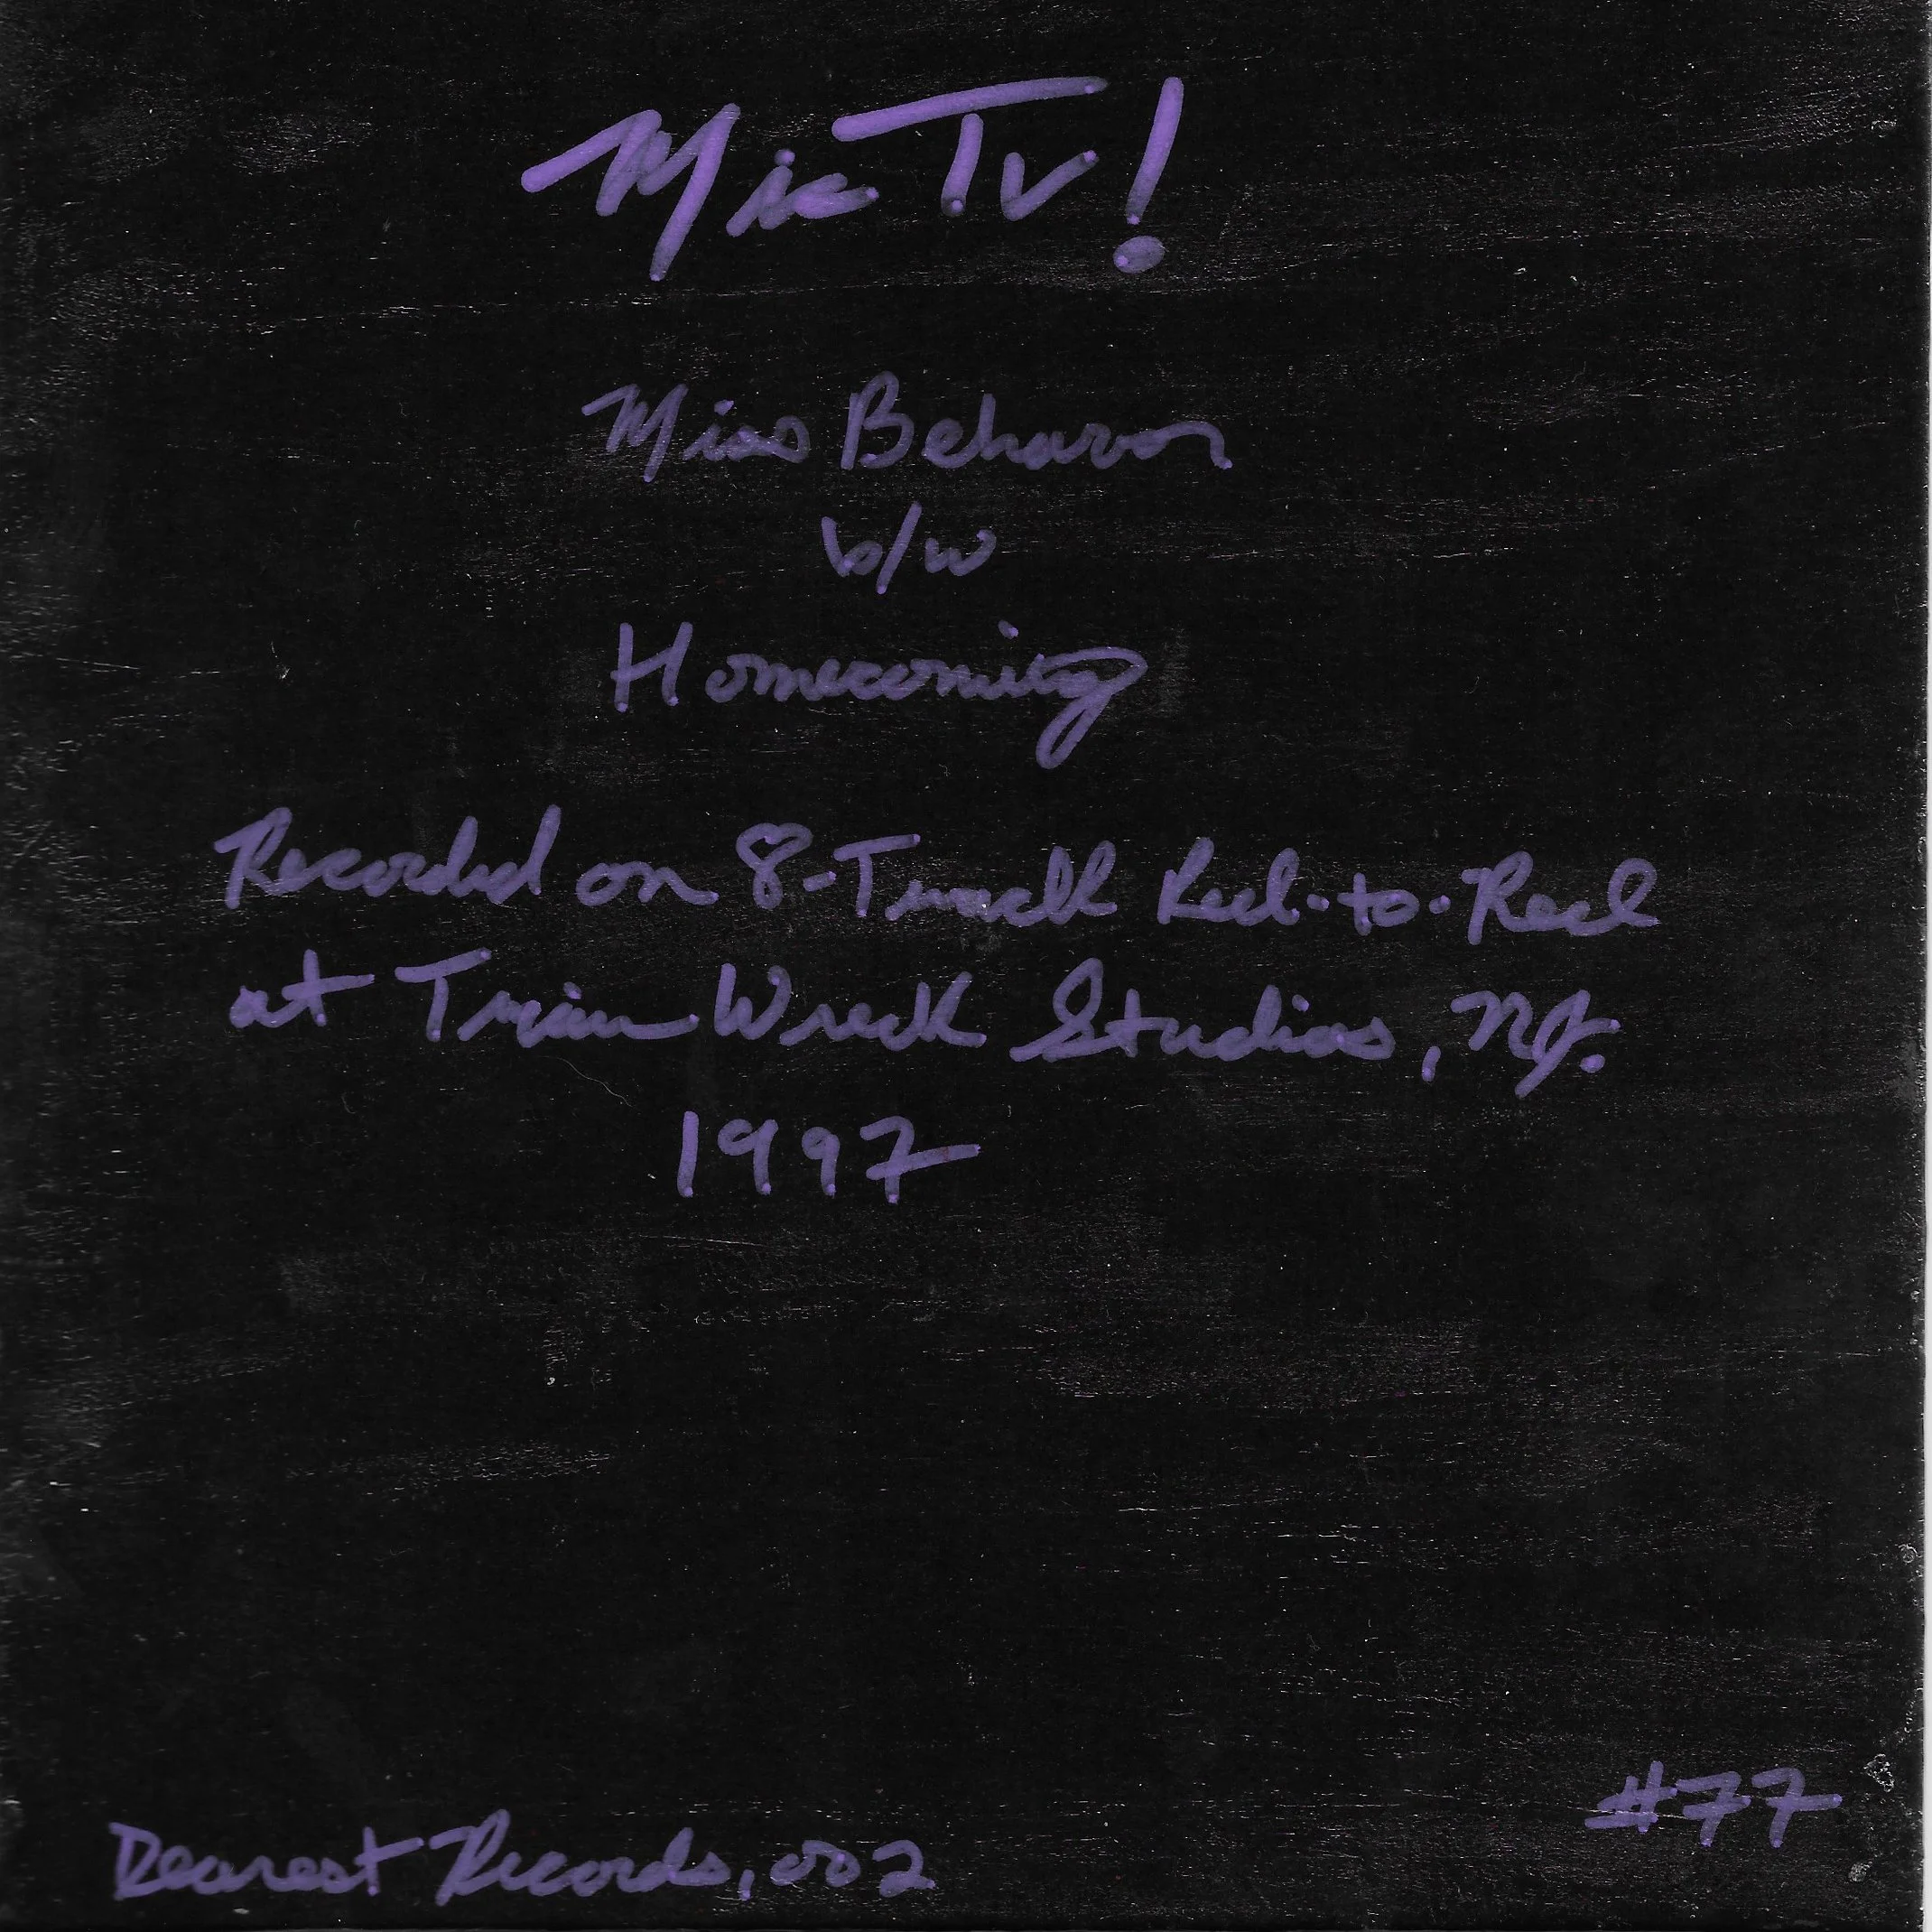 Mic Tv!
Miss Behavor
b/w
Homecoming
Recorded on 8-Track Reel-to-Reel
at Train Wreck Studios, NJ.
1997
#77
Dearest Records, 002